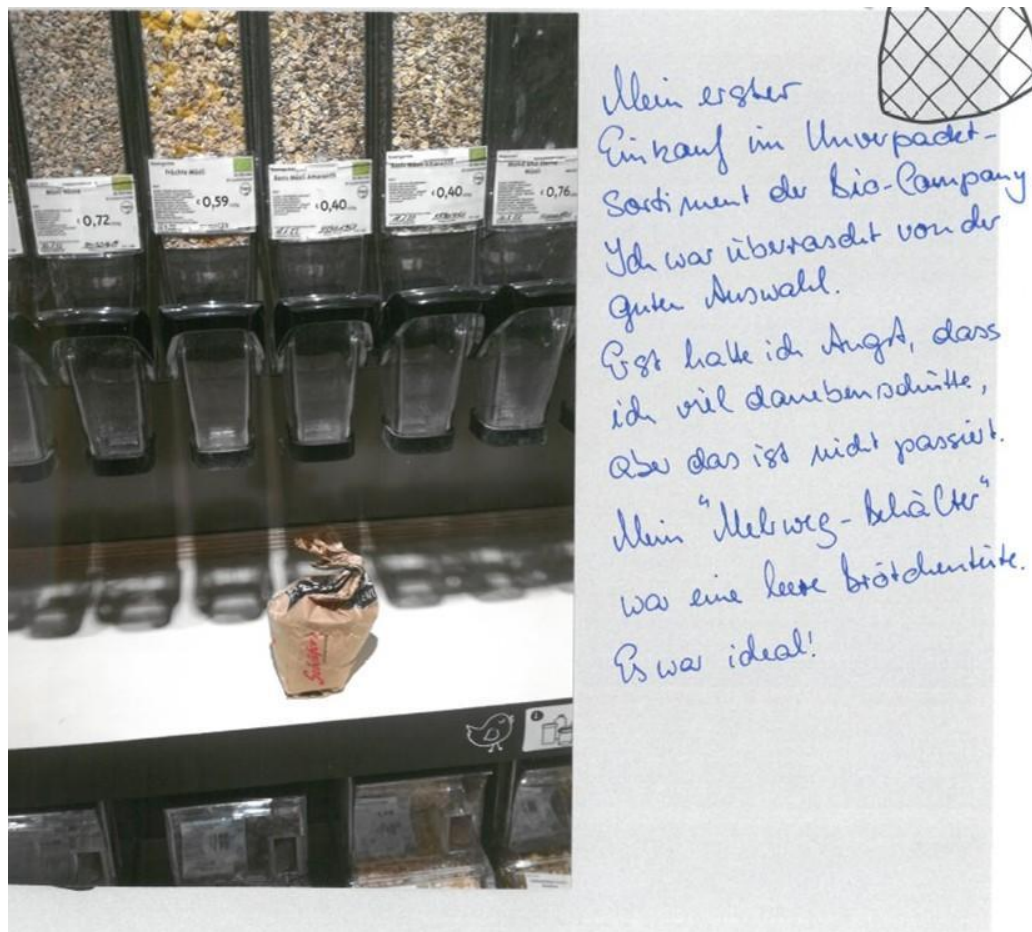 € 0,72
Früchte Müsli
€ 0,59
Basis Müsli Amaranth
€ 0,40
€ 0,40
Müsli
€ 0,76
Schäfer's
Mein erster
Einkauf im Unverpackt-
Sortiment der Bio-Company
Ich war überrascht von der
guten Auswahl.
Erst hatte ich Angst, dass
ich viel danebenschütte,
aber das ist nicht passiert.
Mein "Mehrweg-Behälter"
war eine leere Brötchentüte.
Es war ideal!